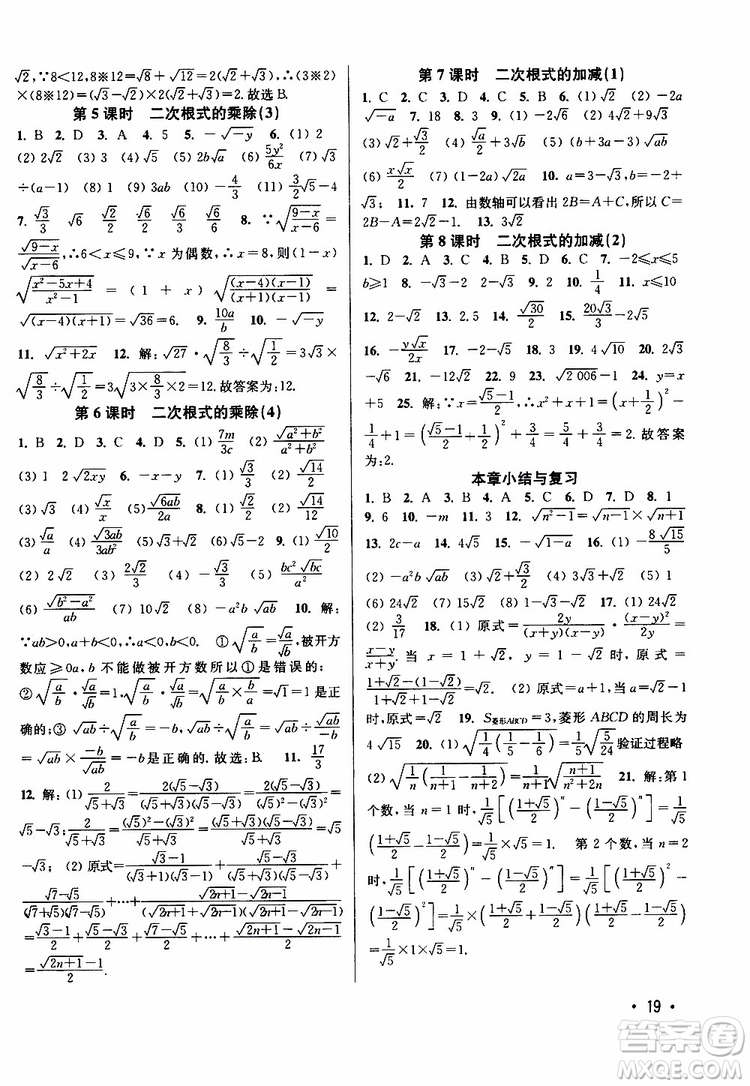 √2,∵8<12,8※12=√8+√12=2(√2+√3),∴(3※2)
×(8※12)=(√3-√2)×2(√2+√3)=2.故选B.
第5课时 二次根式的乘除(3)
1. B 2. D 3. A 4. 5 5. -√-y 6. (1) 2
(2) 2√2 (3) 4 (4) √5 (5) 2b√a (6) 5y²/6x (7) a²
÷(a-1) (8) 1 (9) 3ab (10) -4/3 (11) 3√2/5
8. ∵√(9-x)/(x-6)=
√9-x/√x-6,∴6<x≤9,∵x为偶数,∴x=8,则(1-x)
√(x²-5x+4)/(x²-1) = (1+x)√(x-4)(x-1)/(x+1)(x-1)
=√(x-4)(x+1)=√36=6. 9. 10a/b 10. -√-y
11. √x²+2x 12. 解:√27·√8/3÷√1/2=3√3×
√8/3÷√1/2=3√(3×8/3×2)=12.故答案为:12.
第6课时 二次根式的乘除(4)
1. B 2. D 3. C 4. D 5. (1) 7m/3c (2) √a²+b²/2
(3) 1 6. 2√2xy 7. (1) √3/3 (2) √14/2
(3) √3 (4) √x/x (5) √6ab/2a 8. (1) √2/4 (2) √14/2
(3) √a/a (4) √3ab/3b² (5) √3 (6) √2 9. (1) √10/5
(2) 2√2 (3) 2√2/3 (4) √3/2 (5) bc²√bc/a²
(6) √b²-a²/ab (7) 10√2 (8) -a²b√ab 10. 解:
∵ab>0,a+b<0,∴a<0,b<0.①√a/b=√a/√b,被开方
数应≥0a,b不能做被开方数所以①是错误的;
②√a/b·√b/a=1,√a/b·√b/a=√(a/b×b/a)=√1=1是正
确的;③√ab÷√a/b=-b,√ab÷√a/b=√ab÷√ab/-b
=√ab×-b/√ab=-b是正确的.故选:B. 11. 17/3
12. 解:(1) 2/(√5+√3)=2(√5-√3)/(√5+√3)(√5-√3)=2(√5-√3)/2=
√5-√3;2/(√5+√3)=(5-3)/(√5+√3)=(√5+√3)(√5-√3)/(√5+√3)=√5
-√3;(2) 原式=(√3-1)/(√3+1)(√3-1)+(√5-√3)/(√5+√3)(√5-√3)+
(√7-√5)/(√7+√5)(√7-√5)+…+(√2n+1-√2n-1)/(√2n+1+√2n-1)(√2n+1-√2n-1)=
(√3-1)/2+(√5-√3)/2+(√7-√5)/2+…+(√2n+1-√2n-1)/2=
(√2n+1-1)/2.
第7课时 二次根式的加减(1)
1. C 2. C 3. C 4. D 5. C 6. (1) √2 (2) -2a
√-a (3) √3 7. 18 8. 3 9. (1) -6√2 (2) 4+9√2
(3) √2/4 (4) a+3√b (5) (b+3a-3)√ab
(6) x√x/y (7) (1-2a)√2a (8) 2√2 10. 2+
√3; 11. 1 7 12. 由数轴可以看出2B=A+C,所以C=
2B-A=2√2-1 13. 3√2
第8课时 二次根式的加减(2)
1. D 2. B 3. C 4. C 5. B 6. D 7. -2≤x≤5
b≥1 8. -√3-√2 9. -1 10. 1/4 11. x≤10
12. 2-√3 13. 2.5 14. √30/2 15. 20√3/3-2√5
16. -y√x/2x 17. -√x 18. -2√a 19. 1 20. 2√a
21. √6 22. 9 23. √2006-1 24. (1) √x-√y (2) x
+5 25. 解:∵x=(√5-1)/2,∴x²+x+1=x²+x+
1/4-1/4+1=((√5-1)/2+1/2)²+3/4=5/4+3/4=2.故答案
为:2.
本章小结与复习
1. B 2. A 3. C 4. A 5. C 6. D 7. D 8. 1
9. 6 10. -m 11. 3 12. √n²-1=√n-1×√n+1
13. 2c-a 14. √3 15. -√1-a 16. (1) -8√15/5
(2) -a²b√ab (3) √2+√3/2 (4) 6-√3 (5) 1
(6) 24√2 (7) 15√2 (8) 2√2 17. (1) 24√2
(2) 3/17 18. (1) 原式=2y/(x+y)(x-y)·(x-y)²/y=
当x=1+√2,y=1-√2时,原式=
(2) 原式=(a+1)/a,当a=1+√2
时,原式=√2 19. S菱形ABCD=3,菱形ABCD的周长为
4√15 20. (1) √1/4(1/5-1/6)=1/5√5/24验证过程略
21. 解:第1
个数,当n=1时,1/√5[((1+√5)/2)ⁿ-((1-√5)/2)ⁿ]=
1/√5((1+√5)/2-(1-√5)/2)=1/√5×√5=1. 第2个数,当n=2
时,1/√5[((1+√5)/2)ⁿ-((1-√5)/2)ⁿ]=1/√5[((1+√5)/2)²
-((1-√5)/2)²]=1/√5×((1+√5)/2+(1-√5)/2)((1+√5)/2-(1-√5)/2)
=1/√5×1×√5=1.
· 19 ·
答案圈
MXQE.COM